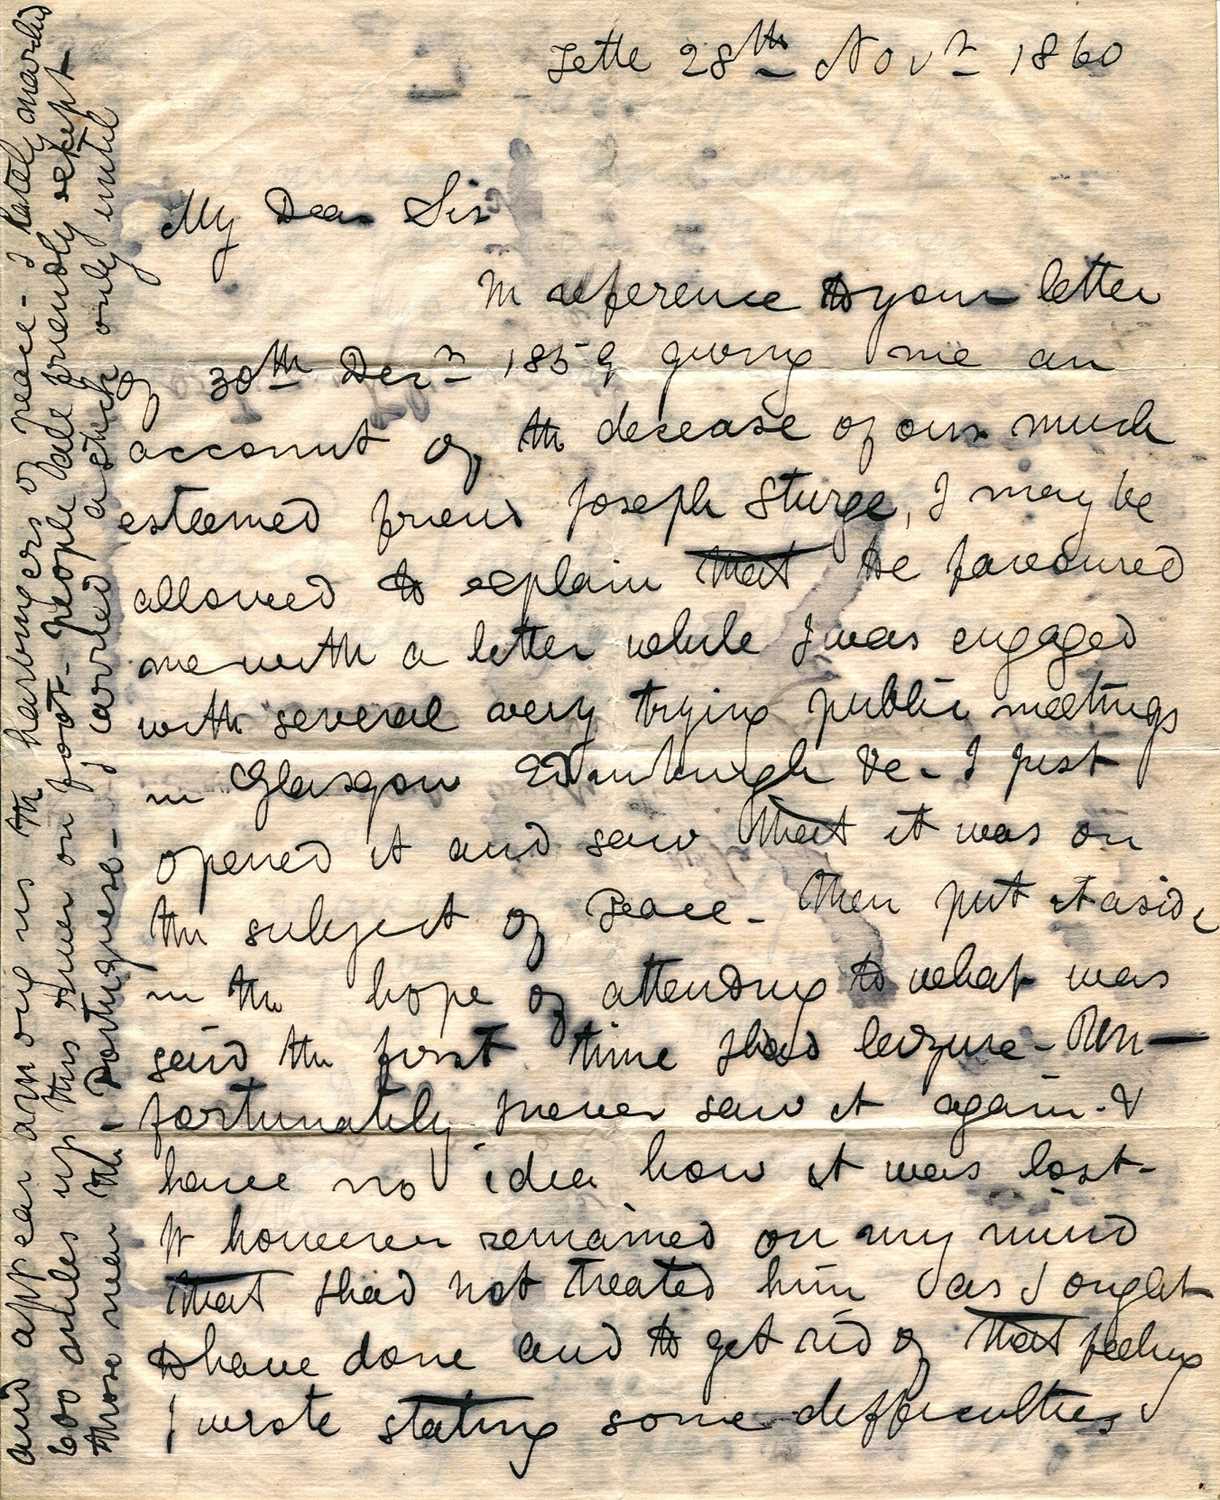 Tette 28th Novr 1860
My Dear Sir
In reference to your letter
of 30th Decr 1859 giving me an
account of the decease of our much
esteemed friend Joseph Sturge, I may be
allowed to explain that he favoured
me with a letter while I was engaged
with several very trying public meetings
in Glasgow Edinburgh &c - I just
opened it and saw that it was on
the subject of Peace - then put it aside
in the hope of attending to what was
said the first time I had leizure - Un-
fortunately I never saw it again - &
have no idea how it was lost -
It however remained on my mind
that I had not treated him as I ought
to have done and to get rid of that feeling
I wrote stating some difficulties
and appear among us the harbingers of peace - I lately marched
600 miles up this river on foot - people all friendly except
those near the Portuguese - I carried a stick only until